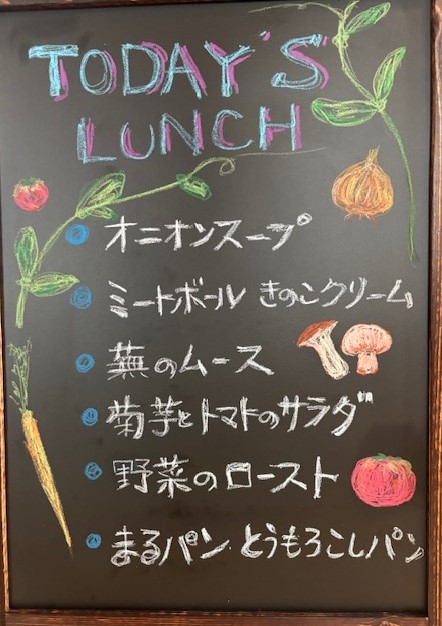 TODAY'S
LUNCH
オニオンスープ
ミートボール きのこクリーム
蕪のムース
菊芋とトマトのサラダ
野菜のロースト
まるパン とうもろこしパン